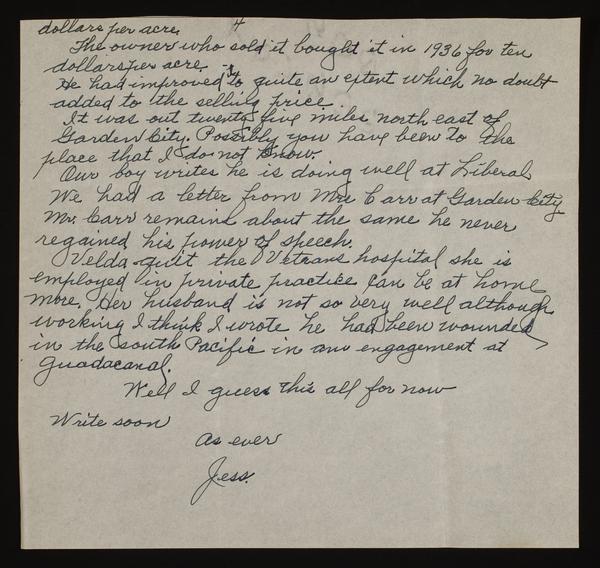 4
dollars per acre.
The owner who sold it bought it in 1936 for ten
dollars per acre.
He had improved it to quite an extent which no doubt
added to the selling price.
It was out twenty five miles north east of
Garden City. Possibly you have been to the
place that I do not know.
Our boy writes he is doing well at Liberal
We had a letter from Mrs Carr at Garden City
Mr. Carr remains about the same he never
regained his power of speech.
Velda quit the Veterans hospital she is
employed in private practice can be at home
more. Her husband is not so very well although
working I think I wrote he had been wounded
in the South Pacific in an engagement at
Guadacanal.
Well I guess this all for now
Write soon
As ever
Jess.